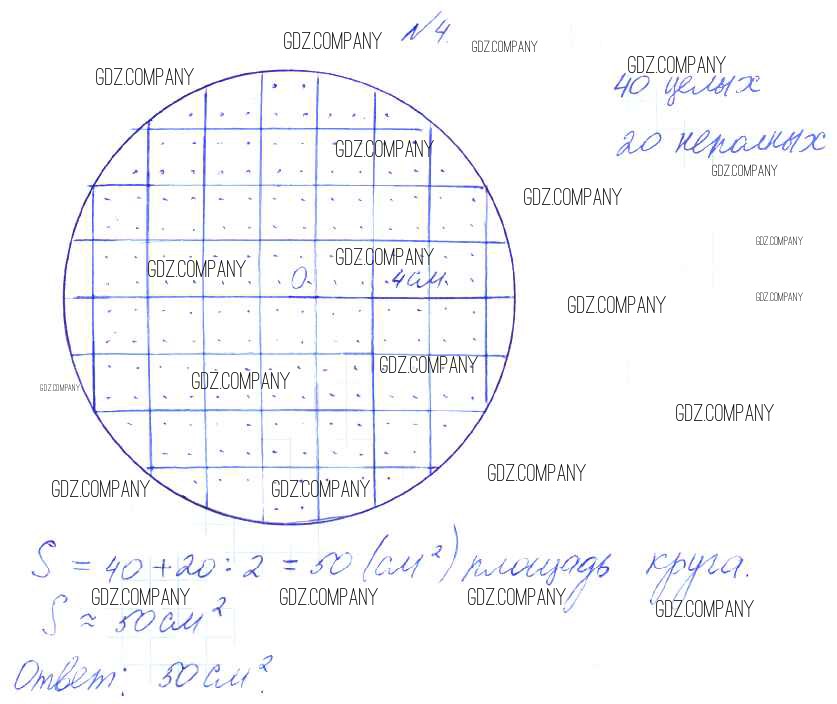 GDZ.COMPANY №4. GDZ.COMPANY
GDZ.COMPANY GDZ.COMPANY
40 целых
GDZ.COMPANY 20 неполных
GDZ.COMPANY
GDZ.COMPANY
GDZ.COMPANY
GDZ.COMPANY GDZ.COMPANY
O 4см. GDZ.COMPANY
GDZ.COMPANY
GDZ.COMPANY
GDZ.COMPANY GDZ.COMPANY
GDZ.COMPANY
GDZ.COMPANY
GDZ.COMPANY GDZ.COMPANY
S = 40 + 20 : 2 = 50 (см²) площадь круга.
GDZ.COMPANY GDZ.COMPANY GDZ.COMPANY GDZ.COMPANY
S ≈ 50 см²
Ответ: 50 см².